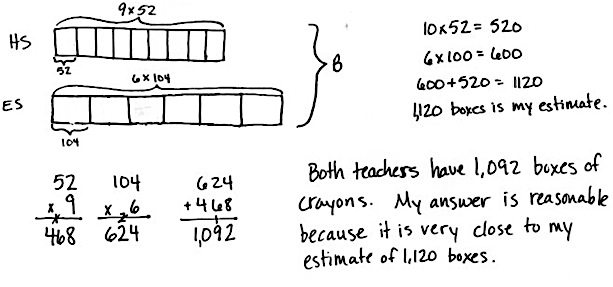 9×52
HS
52
6×104
ES
104
B
10×52 = 520
6×100 = 600
600+520 = 1120
1,120 boxes is my estimate.
52
× 9
468
104
× 6
2
624
624
+ 468
1
1,092
Both teachers have 1,092 boxes of
crayons. My answer is reasonable
because it is very close to my
estimate of 1,120 boxes.